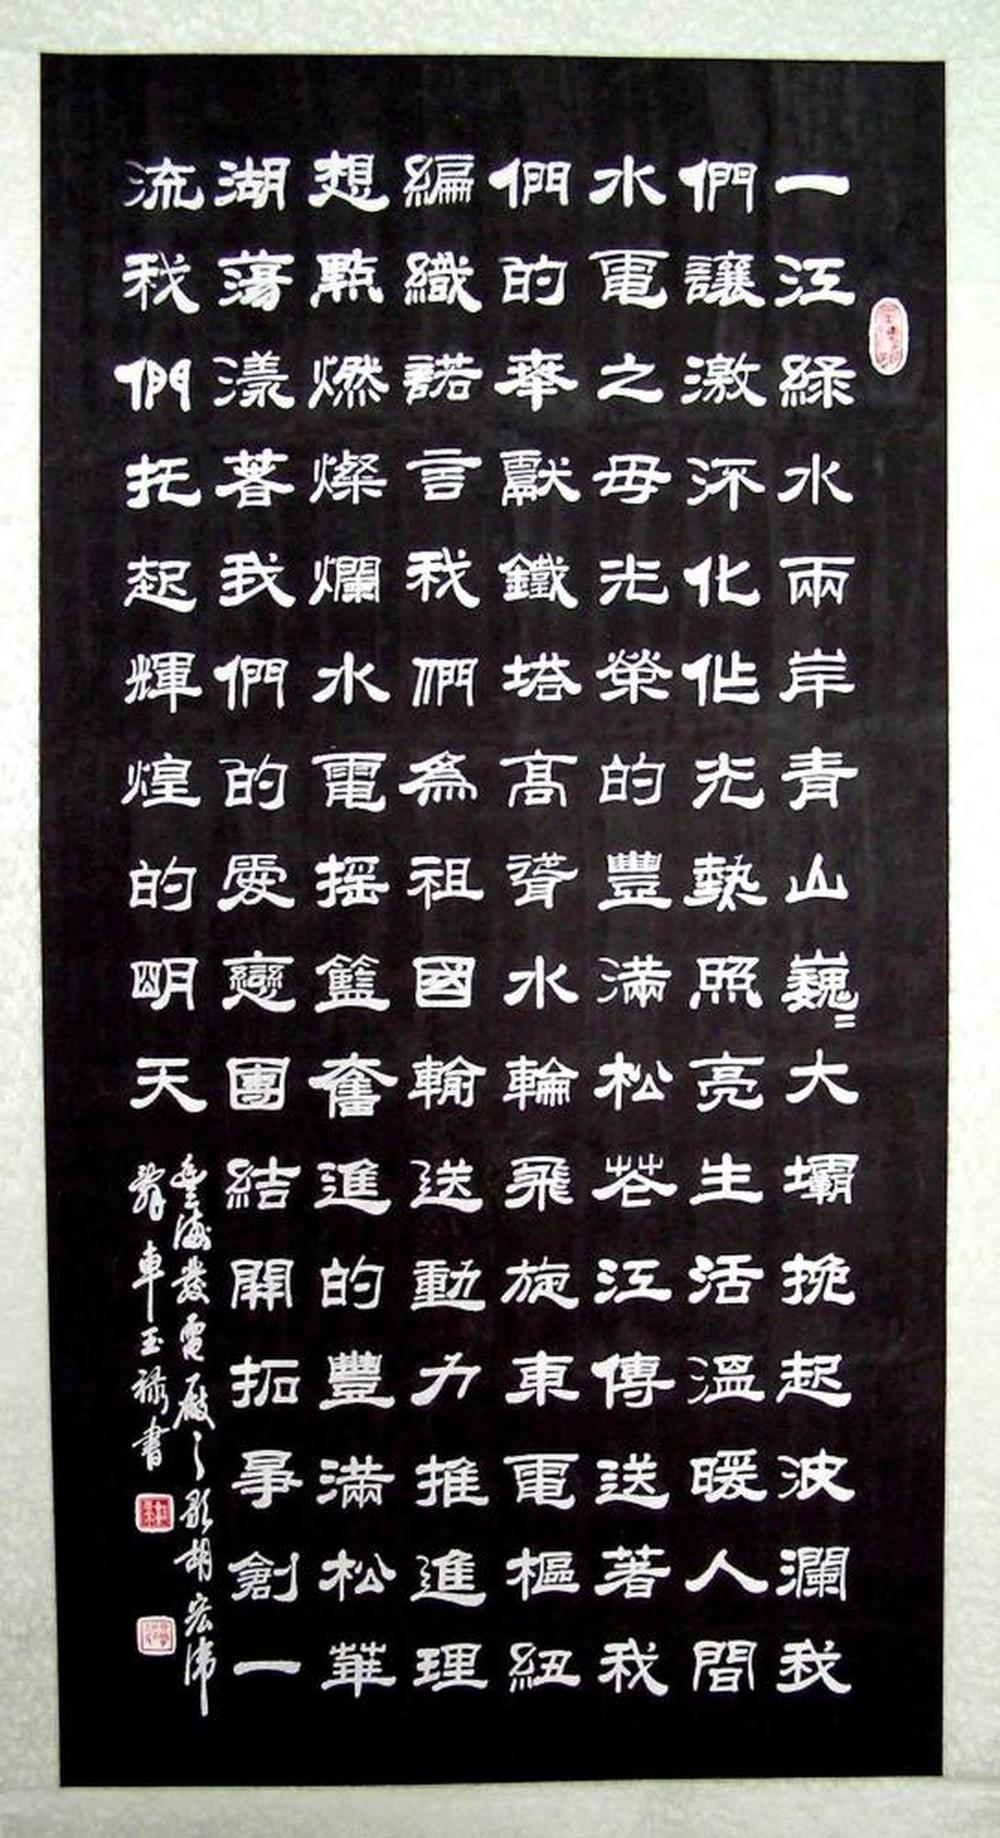 一江綠水兩岸青山巍〻大壩挽起波瀾我
們讓激流化作光熱照亮生活溫暖人間
水電之母光榮的豐滿松花江傳送著我
們的奉獻鐵塔高聳水輪飛旋東電樞紐
編織諾言我們為祖國輸送動力推進理
想點燃燦爛水電搖籃奮進的豐滿松華
湖蕩漾著我們的愛戀團結開拓爭創一
流我們托起輝煌的明天
豐滿發電廠之歌胡宏偉
辭車玉祿書